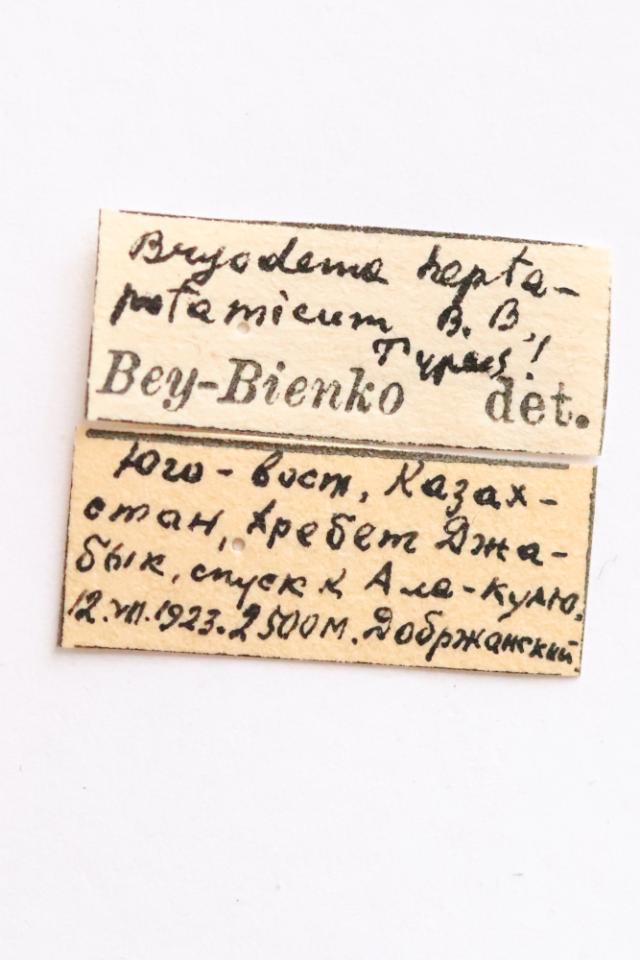 Bryodema hepta-
potamicum B. B.
Types!
Bey-Bienko det.
Юго-вост, Казах-
стан, хребет Джа-
бык, спуск к Ала-кулю,
12.VII.1923. 2500м. Добржанский